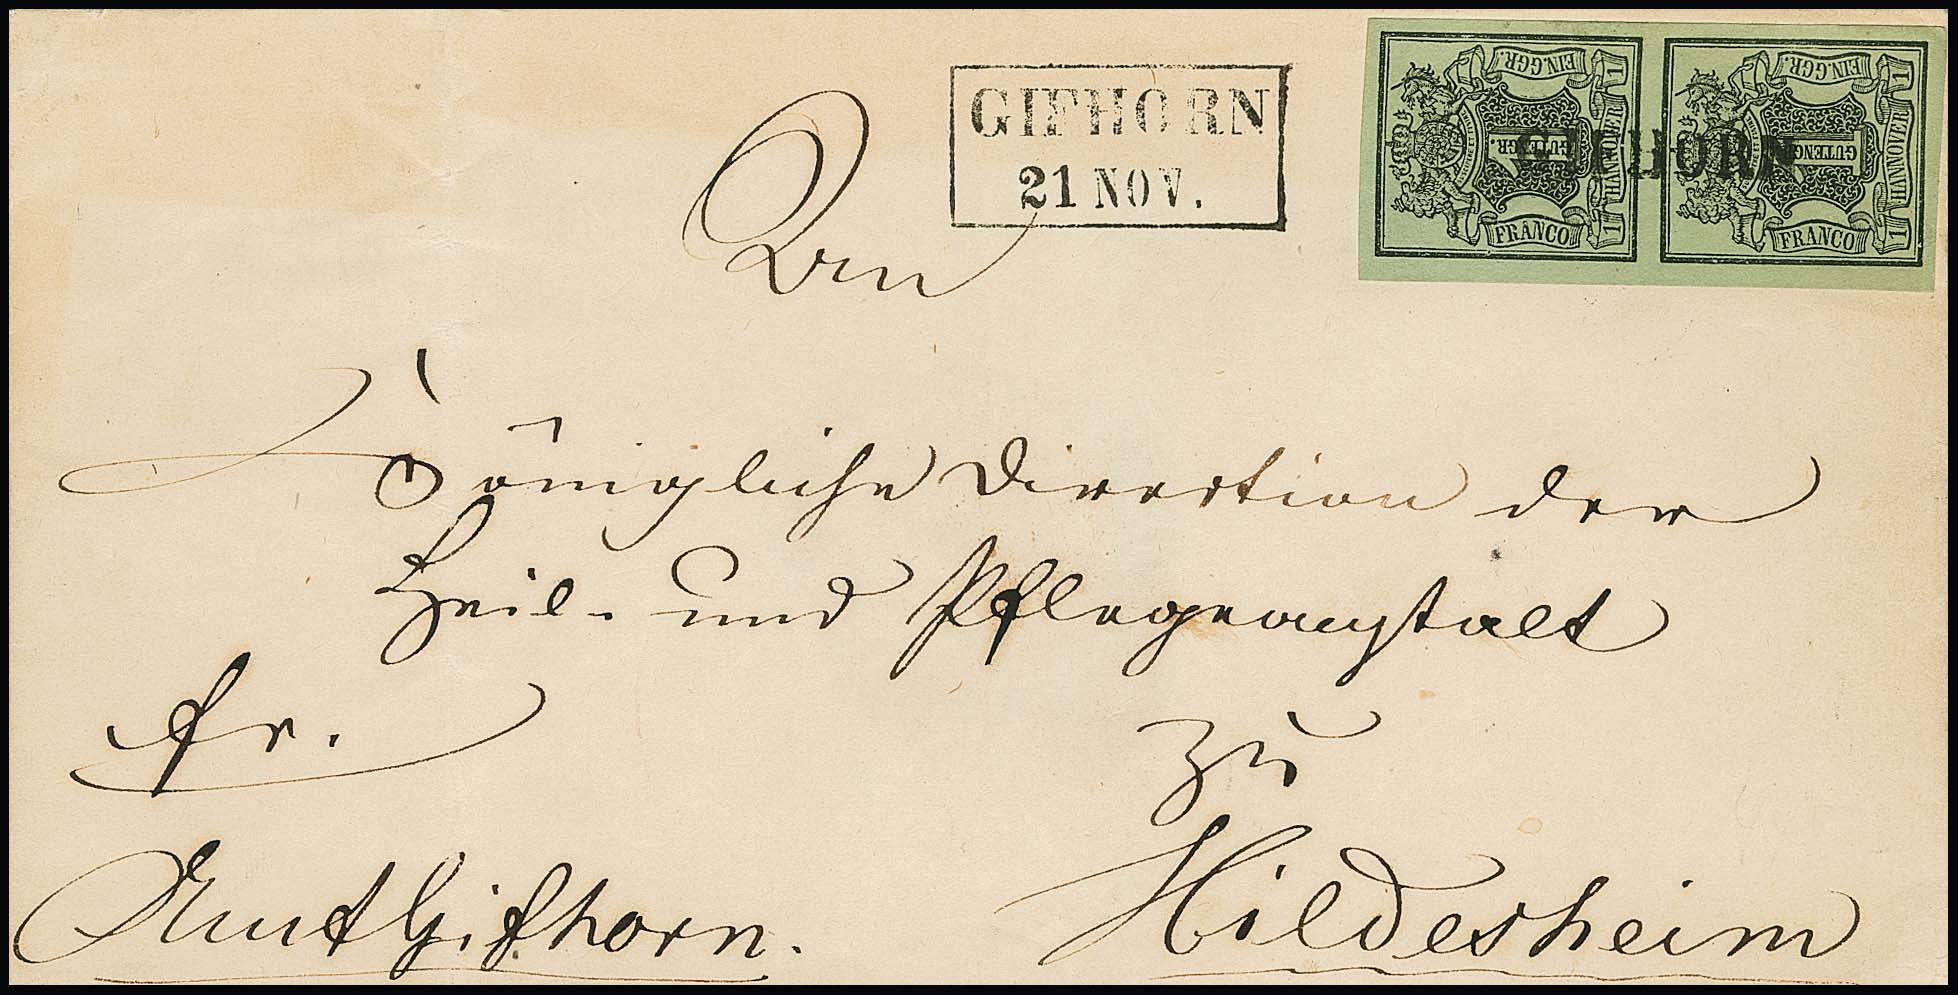 GIFHORN
21 NOV.
EIN.GGR.
1
1 GUTEGR.
HANNOVER
FRANCO
1
EIN.GGR.
1
1 GUTENGR.
HANNOVER
FRANCO
1
GIFHORN
An
Königliche Direction der
Heil- und Pflegeanstalt
fr.
zu
Amt Gifhorn.
Hildesheim